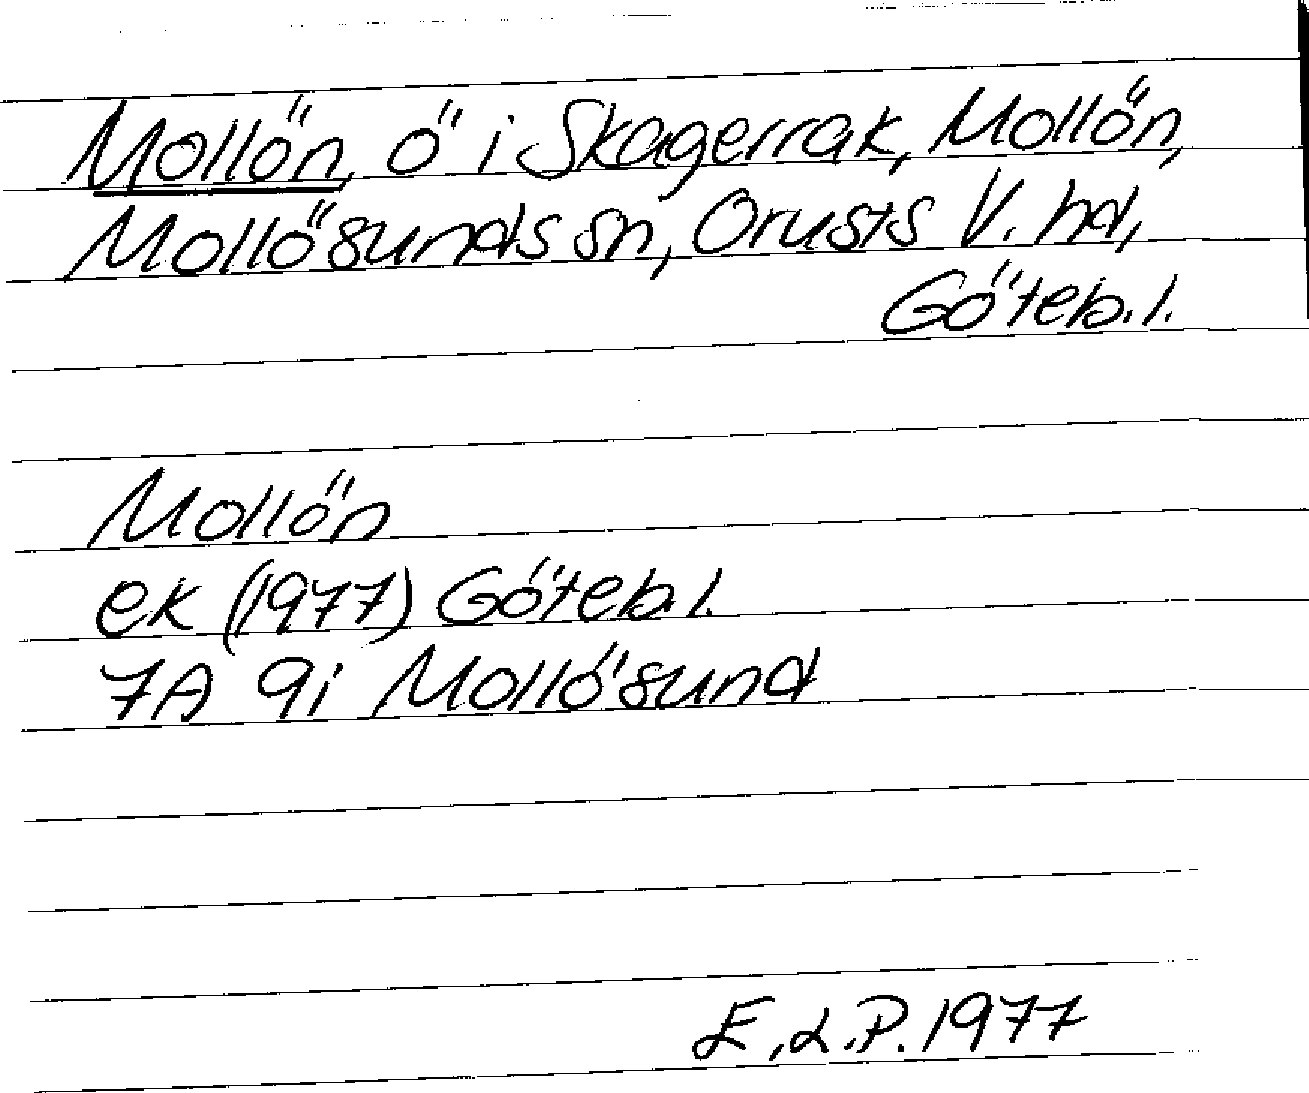 Mollön, ö i Skagerrak, Mollön,
Mollösunds sn, Orusts V. hd,
Göteb. l.
Mollön
ek (1977) Göteb. l.
7A 9i Mollösund
E.L.P. 1977